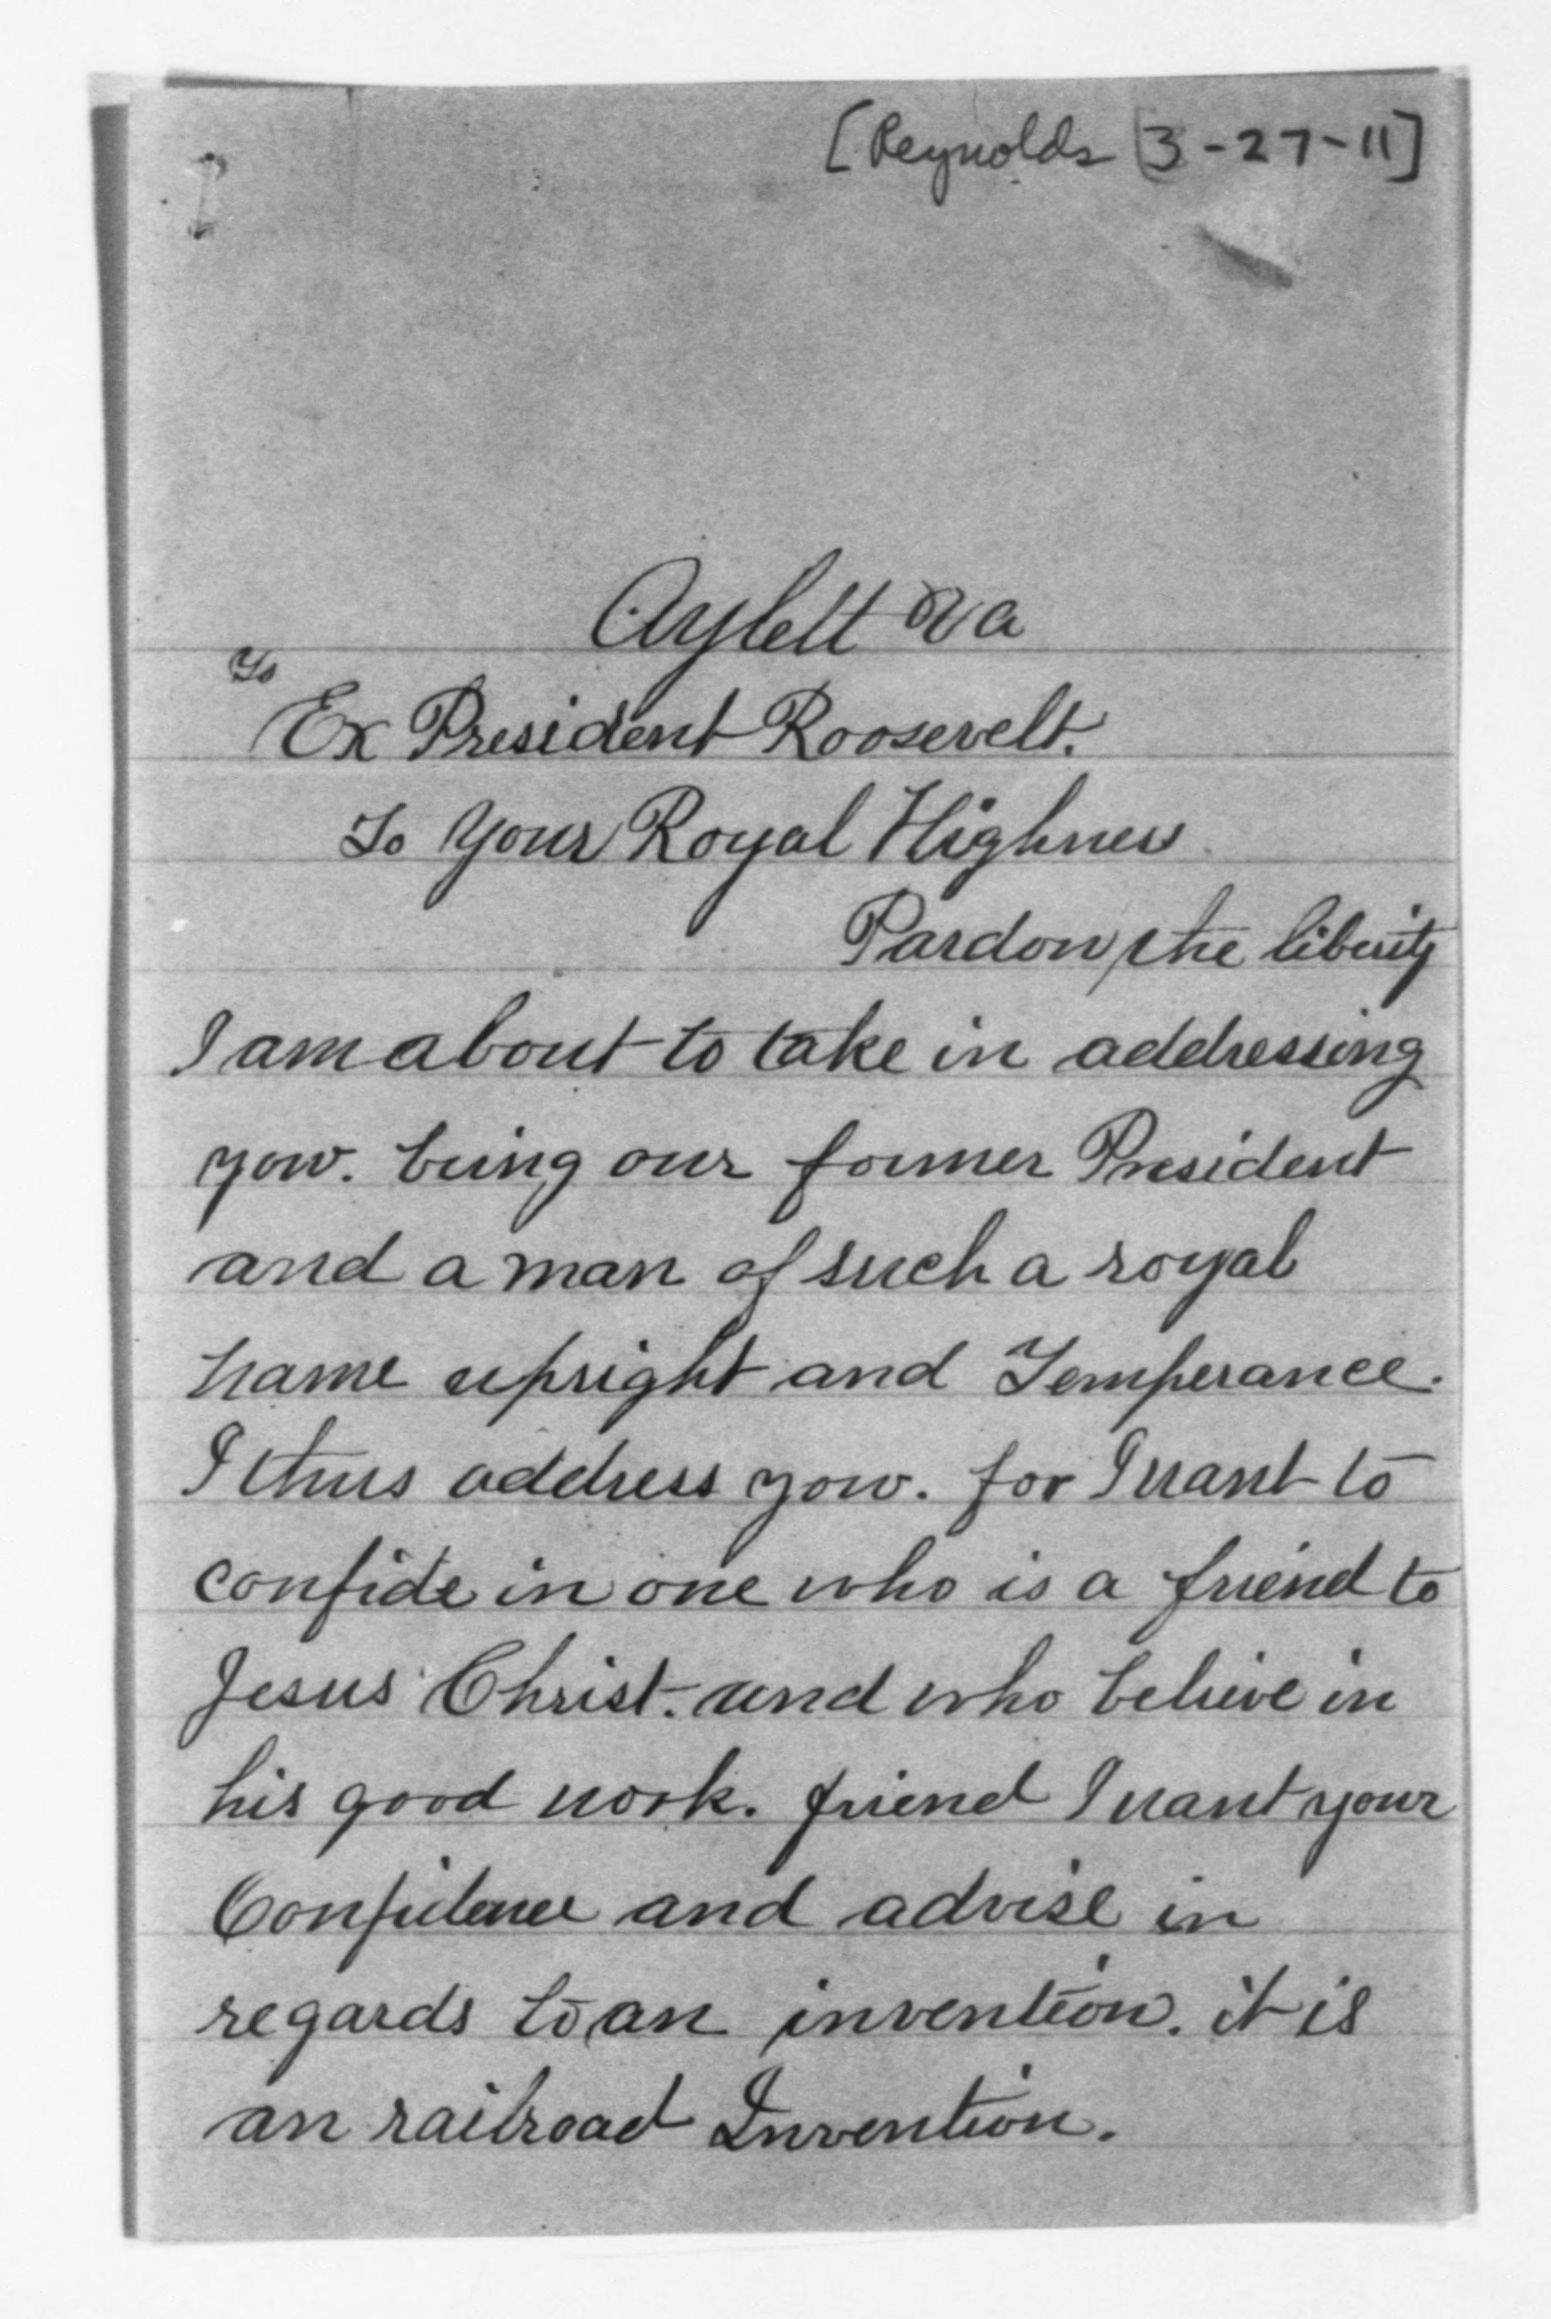 [Reynolds 3-27-11]
Aylett Va
To
Ex President Roosevelt.
To Your Royal Highness
Pardon the liberity
I am about to take in addressing
you. being our former President
and a man of such a royal
name upright and Temperance.
I thus address you. for I want to
confide in one who is a friend to
Jesus Christ. and who believe in
his good work. friend I want your
Confidence and advise in
regards to an invention. it is
an railroad Invention.